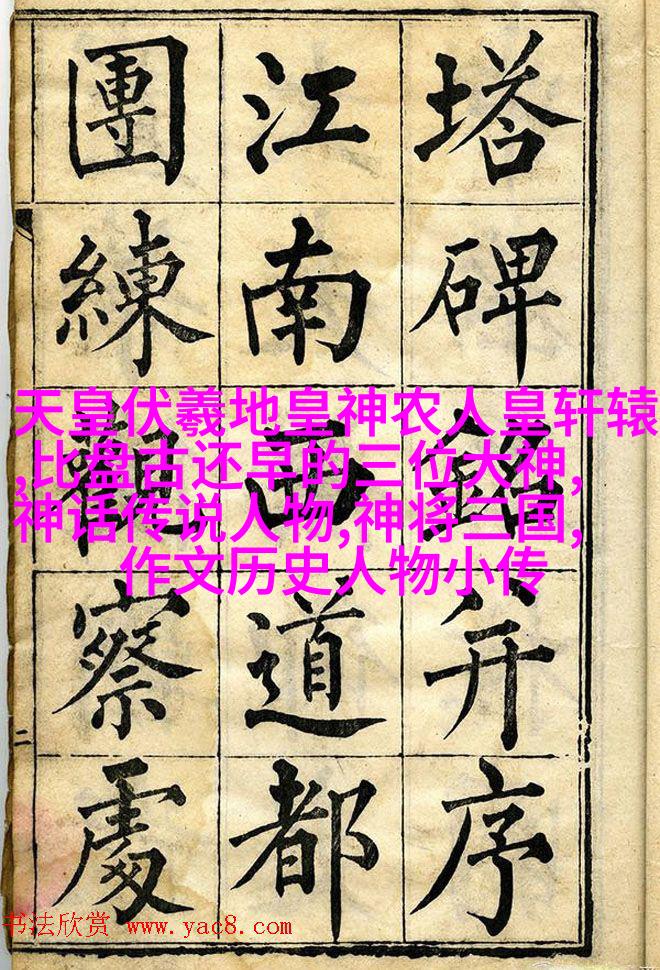 塔碑銘并序
江南西道都
團練觀察處
二
天皇伏羲地皇神农人皇轩辕
,比盘古还早的三位大神,
神话传说人物,神将三国,
作文历史人物小传
书法欣赏 www.yac8.com